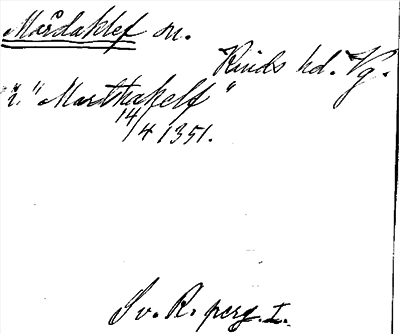 Mårdaklef sn.
Kinds hd. Vg.
i "Mardhakelf"
14/4 1351.
Sv. R. perg. I.